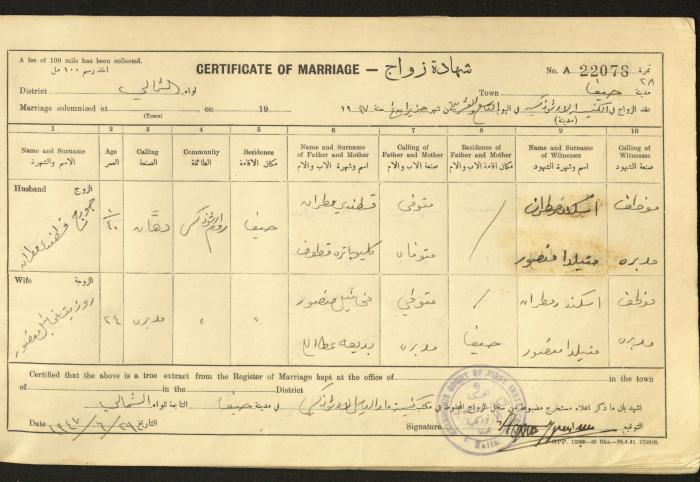 A fee of 100 mils has been collected.
اخذ رسم ١٠٠ مل
CERTIFICATE OF MARRIAGE — شهادة زواج
No. A 22078 نمرة
District لواء الشمالي
Town حيفا مدينة
Marriage solemnised at, on 19
(Town)
عقد الزواج في في اليوم من شهر سنة ١٩٤٧
(مدينة)
1 2 3 4 5 6 7 8 9 10
Name and Surname الاسم والشهرة
Age العمر
Calling الصنعة
Community الطائفة
Residence مكان الاقامة
Name and Surname of Father and Mother اسم وشهرة الاب والام
Calling of Father and Mother صنعة الاب والام
Residence of Father and Mother مكان اقامة الاب والام
Name and Surname of Witnesses اسم وشهرة الشهود
Calling of Witnesses صنعة الشهود
Husband الزوج
جورج قسطندي مطران
دهّان
روم ارثوذكس
حيفا
قسطندي مطران
متوفي
اسكندر مطران
موظف
كليوباتره قطوف
متوفاه
متيلدا منصور
مديره
Wife الزوجة
منصور
٢٤
مديره
〃
〃
مخائيل منصور
متوفي
اسكندر مطران
موظف
بديعه
مديره
حيفا
متيلدا منصور
مديره
Certified that the above is a true extract from the Register of Marriage kept at the office of in the town
of in the District
اشهد بان ما ذكر اعلاه مستخرج مضبوط من سجل الزواج المحفوظ في مكتب في مدينة حيفا التابعة للواء الشمالي
Date التاريخ
Signature التوقيع
G.P.P. 12588—60 Bks.—28.4.41